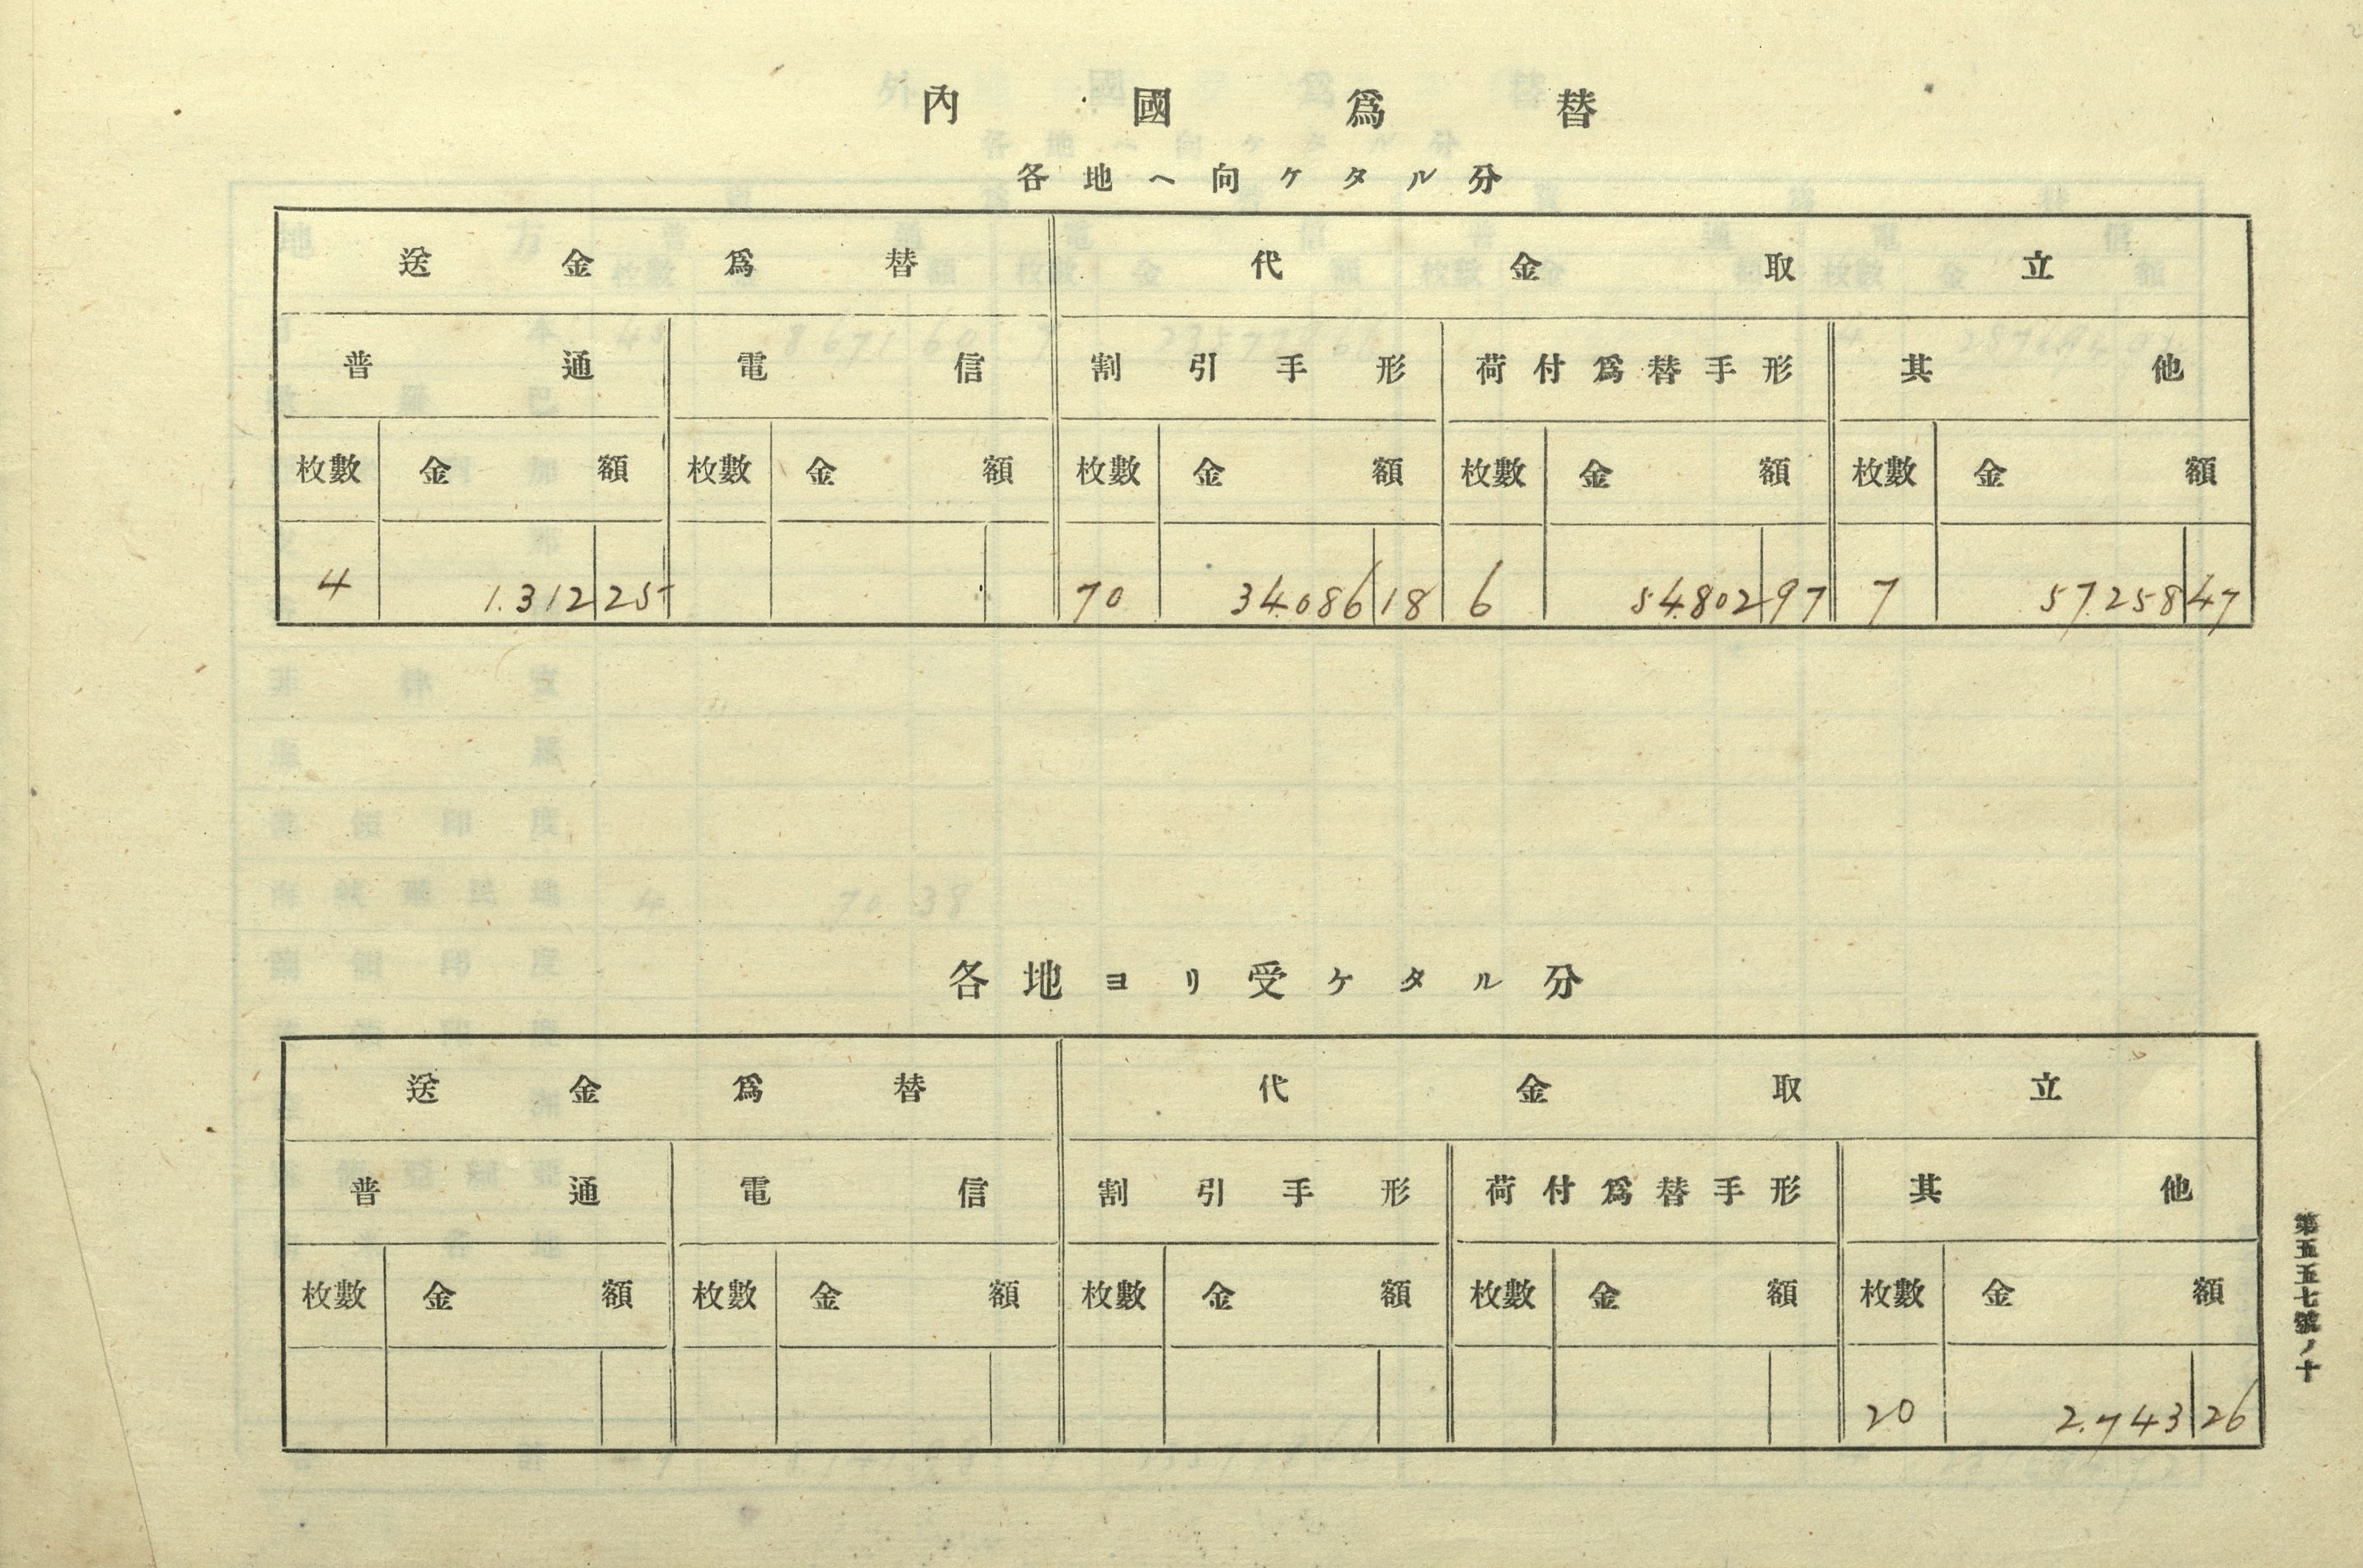 內國爲替
各地ヘ向ケタル分
送金爲替 代金取立
普通 電信 割引手形 荷付爲替手形 其他
枚數 金額 枚數 金額 枚數 金額 枚數 金額 枚數 金額
4 1.312 25 70 34.086 18 6 54.802 97 7 57.258 47
各地ヨリ受ケタル分
送金爲替 代金取立
普通 電信 割引手形 荷付爲替手形 其他
枚數 金額 枚數 金額 枚數 金額 枚數 金額 枚數 金額
20 2.743 26
第五五七號ノ十